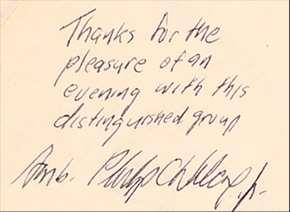 Thanks for the
pleasure of an
evening with this
distinguished group
Amb. Philip Jr.